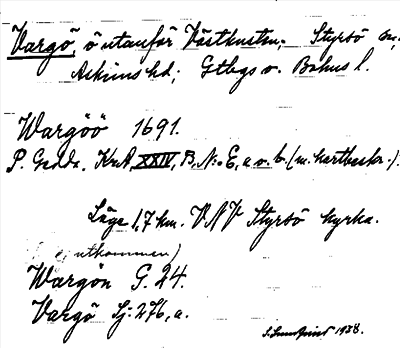 Vargö, ö utanför Västkusten. Styrsö sn,
Askims hd; Gtbgs o. Bohus l.
Wargöö 1691.
P. Gedda. KrA, XXIV, B, N:o E, a o. b. (m. kartbeskr.).
Läge 1,7 km. VNV Styrsö kyrka.
utkommen)
Wargön G. 24.
Vargö Sj: 276, a.
1938.